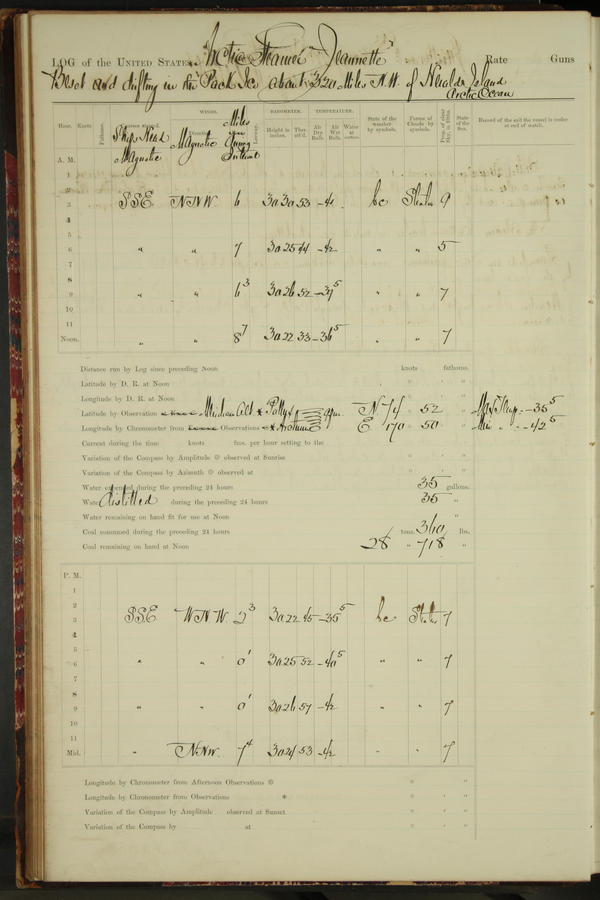 LOG of the UNITED STATES Arctic Steamer "Jeannette" Rate Guns
Beset and drifting in the Pack Ice about 320 Miles N.W. of Herald Island
Arctic Ocean
Hour. Knots. Fathoms. Courses steered. WINDS. Direction. Leeway. BAROMETER. Height in inches. Ther. att'd. TEMPERATURE. Air Dry Bulb. Air Wet Bulb. Water at surface. State of the weather by symbols. Forms of Clouds by symbols. Prop. of clear sky, in tenths. State of the Sea. Record of the sail the vessel is under at end of watch.
Ship's Head Magnetic Magnetic Miles Interval
A. M.
1
2
3 SSE NNW 6 30 30 53 bc Stratus 9
4
5
6 " " 7 30 25 44 -42 " " 5
7
8
9 " " 6 3 30 26 52 -39 5 " " 7
10
11
Noon. " " 8 7 30 22 33 -36 5 " " 7
Distance run by Log since preceding Noon knots fathoms.
Latitude by D. R. at Noon ° ' "
Longitude by D. R. at Noon ° ' "
Latitude by Observation Meridian Alt N 74 52 Max Temp -35 5
Longitude by Chronometer from Observations * Arcturus E 170 50 Min " -42 5
Current during the time knots fms. per hour setting to the
Variation of the Compass by Amplitude observed at Sunrise
Variation of the Compass by Azimuth observed at
Water expended during the preceding 24 hours 35 gallons.
Water distilled during the preceding 24 hours 35 "
Water remaining on hand fit for use at Noon "
Coal consumed during the preceding 24 hours tons. 360 lbs.
Coal remaining on hand at Noon 28 " 718 "
P. M.
1
2
3 SSE WNW 2 3 30 22 45 -35 5 bc Stratus 7
4
5
6 " " 0 1 30 25 52 -40 5 " " 7
7
8
9 " " 0 1 30 26 57 -42 " " 7
10
11
Mid. " NNW 7 4 30 24 53 -42 " " 7
Longitude by Chronometer from Afternoon Observations ° ' "
Longitude by Chronometer from Observations * ° ' "
Variation of the Compass by Amplitude observed at Sunset ° ' "
Variation of the Compass by at ° ' "